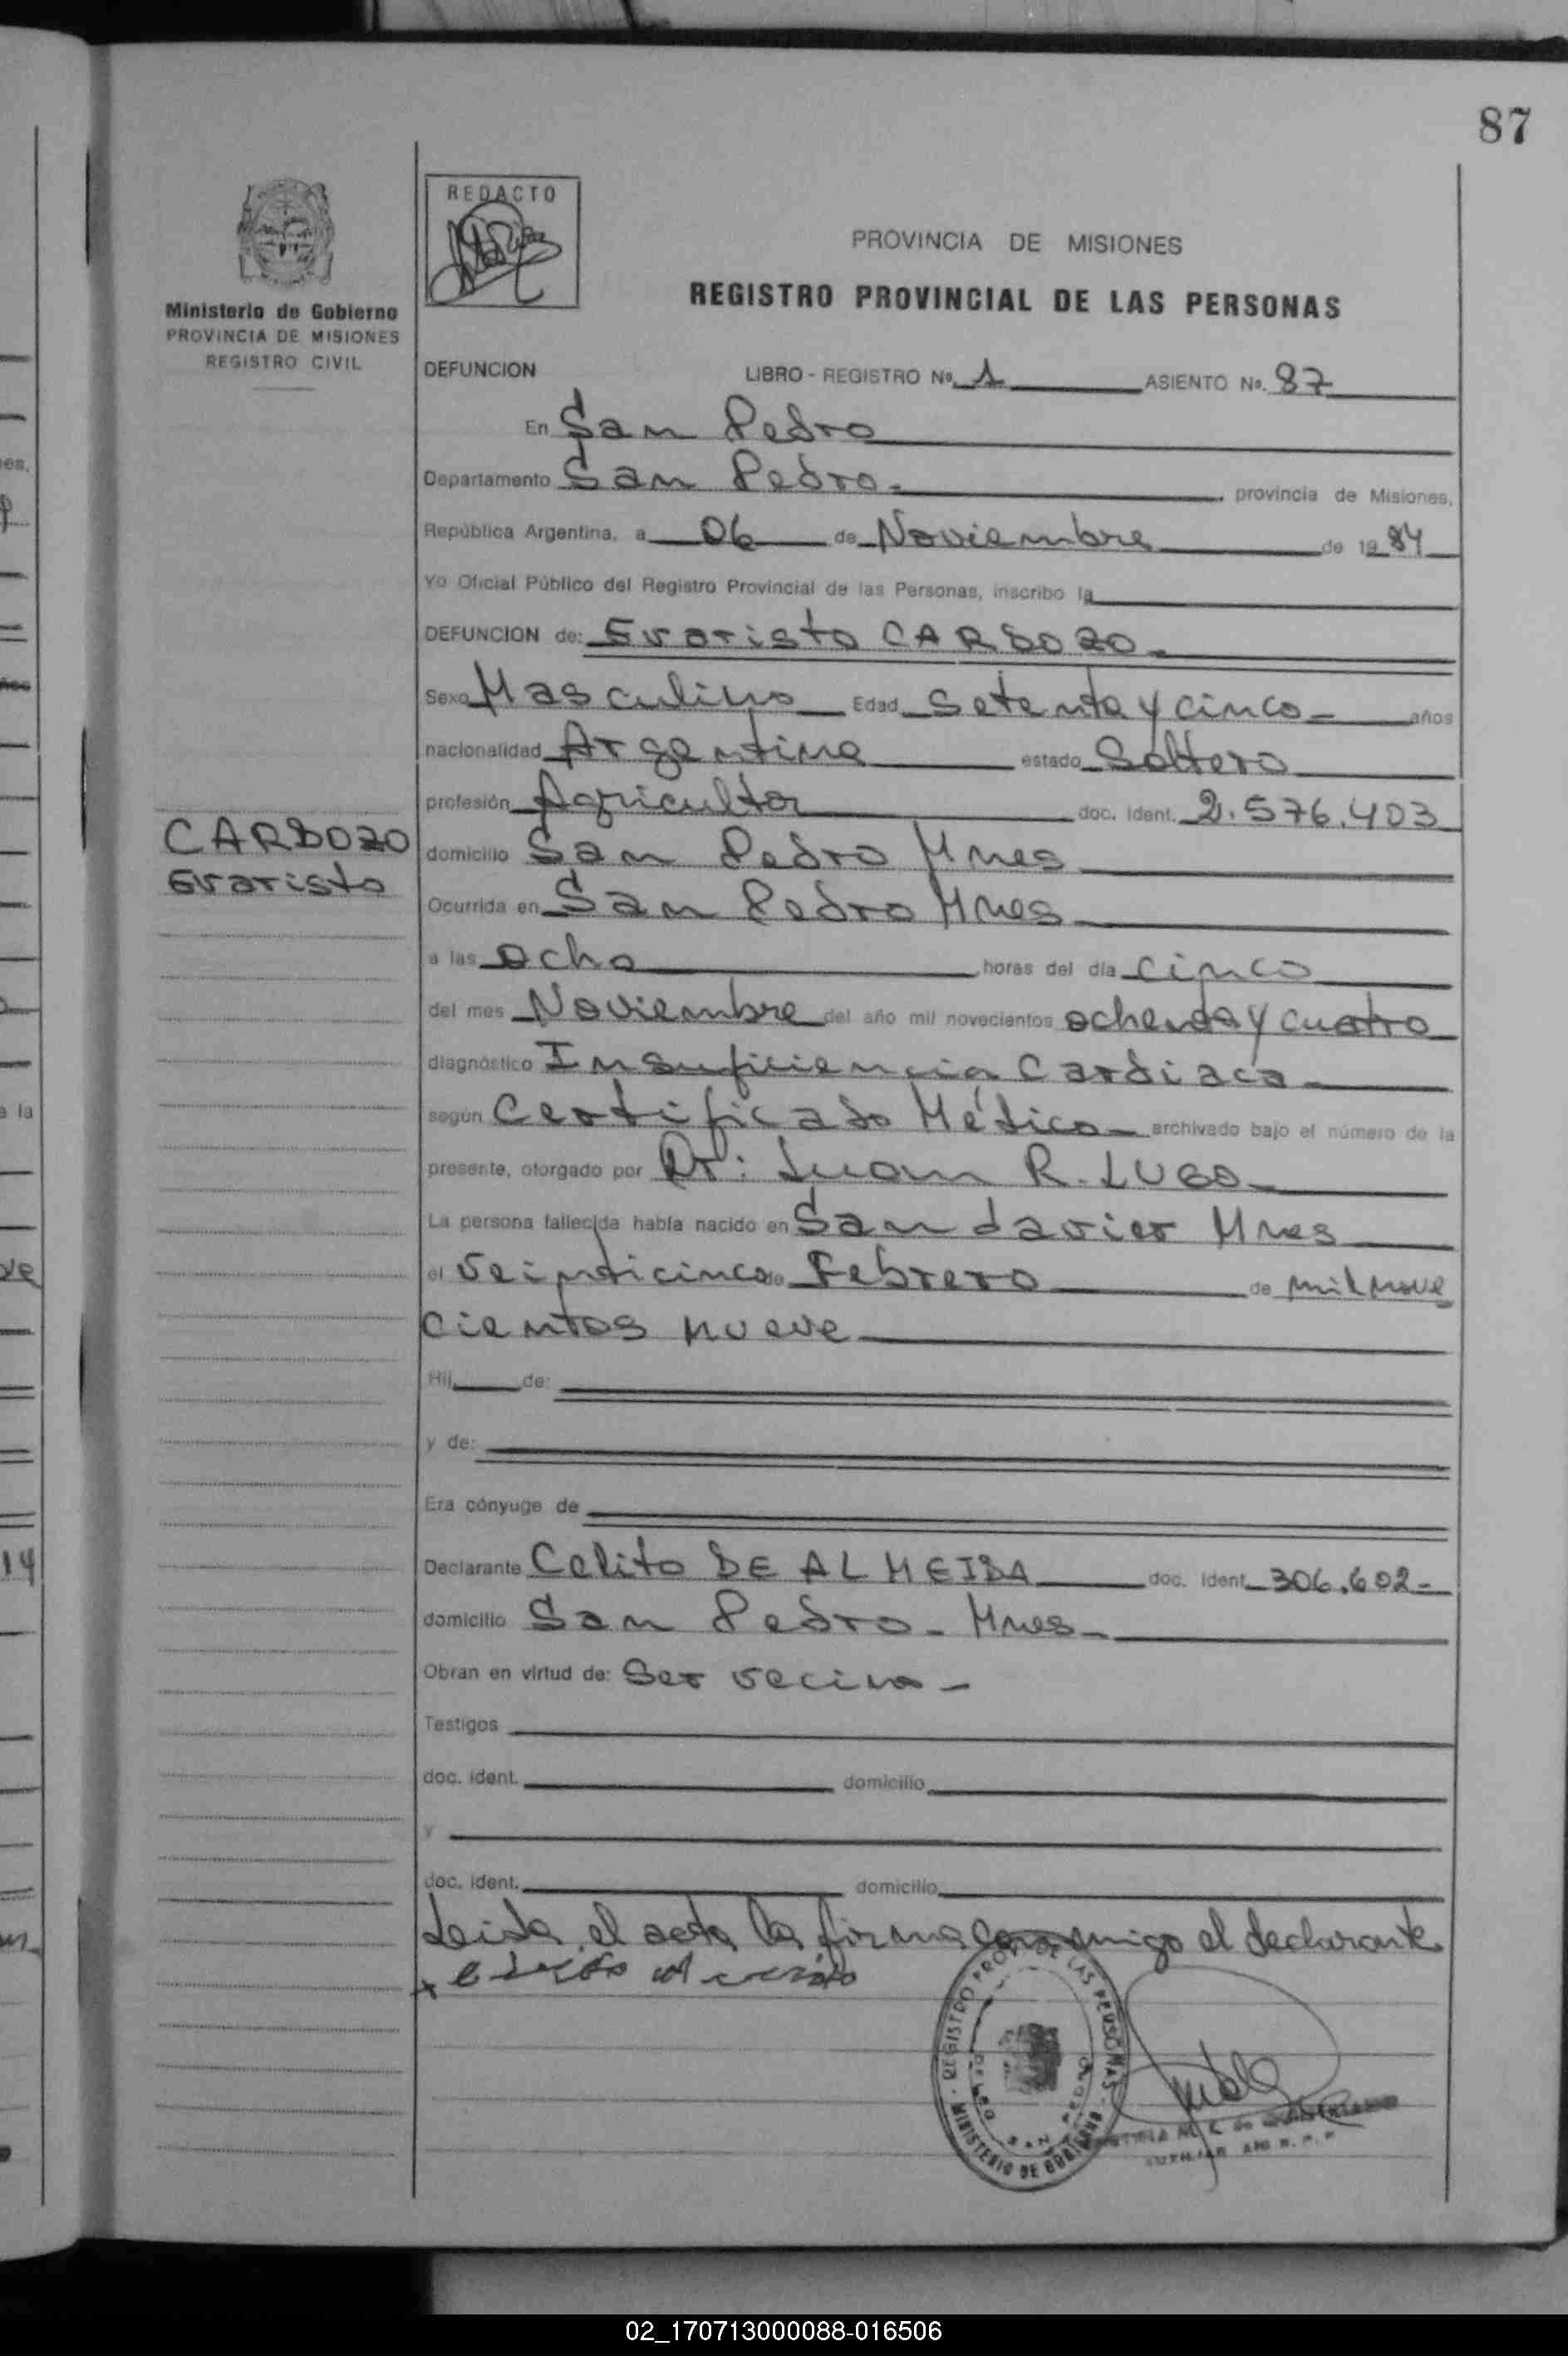 87
REDACTO
PROVINCIA DE MISIONES
REGISTRO PROVINCIAL DE LAS PERSONAS
Ministerio de Gobierno
PROVINCIA DE MISIONES
REGISTRO CIVIL
DEFUNCION LIBRO - REGISTRO Nº 1 ASIENTO Nº. 87
En San Pedro
Departamento San Pedro. provincia de Misiones,
República Argentina, a 06 de Noviembre de 1984
Yo Oficial Público del Registro Provincial de las Personas, inscribo la
DEFUNCION de: Evaristo CARDOZO
Sexo Masculino Edad Setenta y cinco años
nacionalidad Argentina estado Soltero
profesión Agricultor doc. ident. 2.576.403
CARDOZO
Evaristo
domicilio San Pedro Mnes
Ocurrida en San Pedro Mnes
a las ocho horas del día cinco
del mes Noviembre del año mil novecientos ochenta y cuatro
diagnóstico Insuficiencia Cardiaca
según Certificado Médico archivado bajo el número de la
presente, otorgado por Dr: Juan R. LUGO
La persona fallecida había nacido en San Javier Mnes
el Veinticinco de Febrero de mil nove
cientos nueve
Hij de:
y de:
Era cónyuge de
Declarante Celito DE ALMEIDA doc. ident 306.602
domicilio San Pedro - Mnes
Obran en virtud de: Ser vecino -
Testigos
doc. ident. domicilio
y
doc. ident. domicilio
Leida el acta la firma conmigo el declarante
REGISTRO PROV. DE LAS PERSONAS
MINISTERIO DE GOBIERNO
02_170713000088-016506